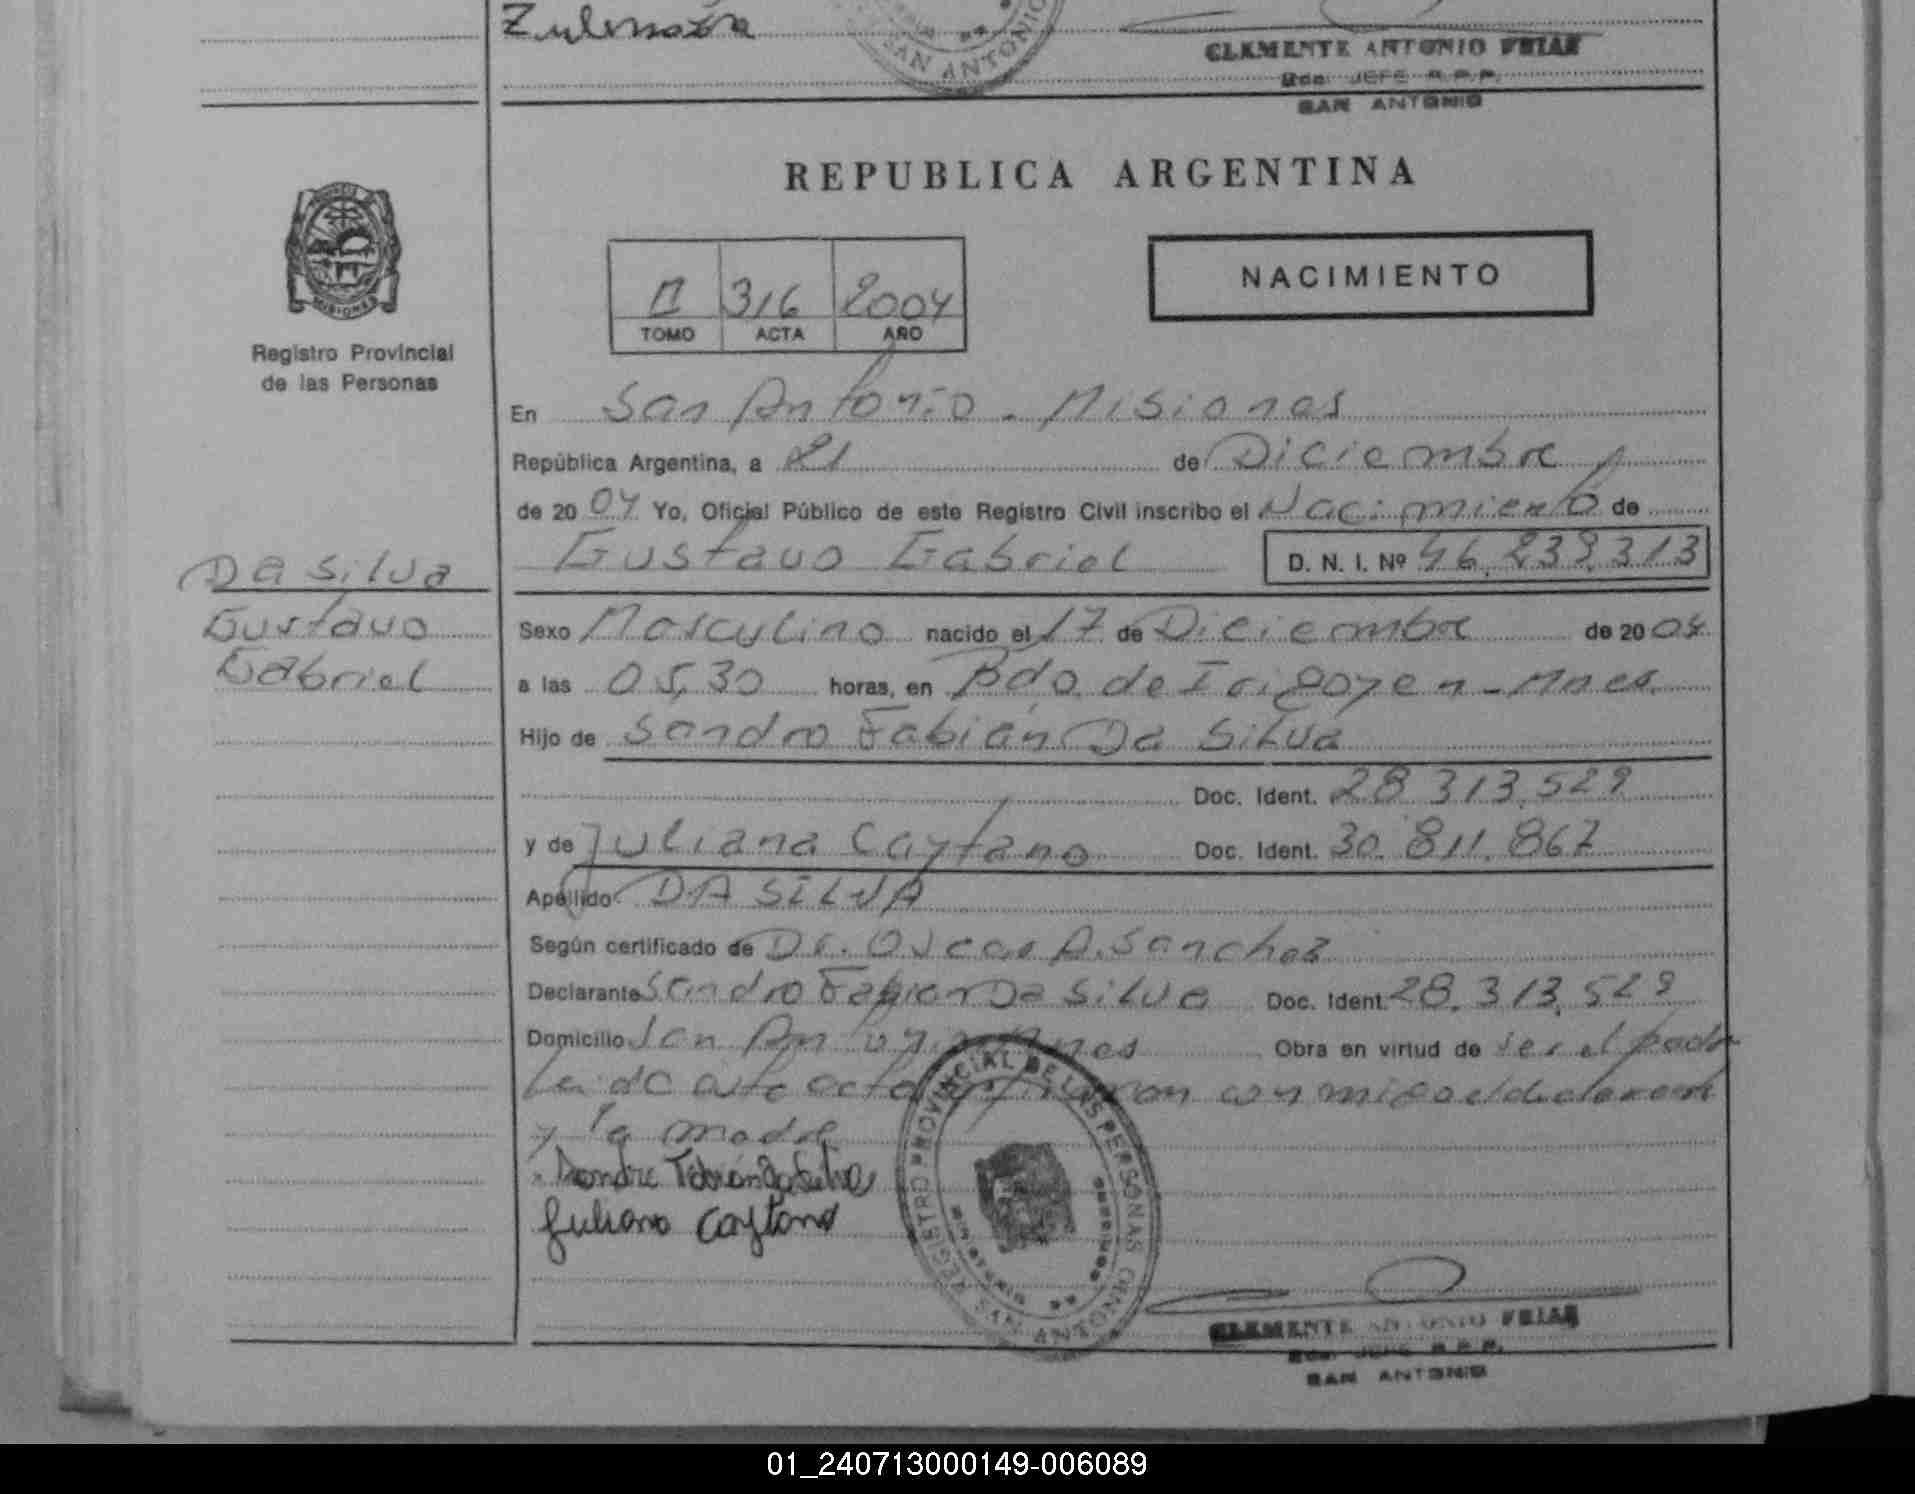 Zulma
SAN ANTONIO
CLEMENTE ANTONIO FRIAS
JEFE R.P.P.
SAN ANTONIO
REPUBLICA ARGENTINA
MISIONES
Registro Provincial
de las Personas
II 316 2004
TOMO ACTA AÑO
NACIMIENTO
En San Antonio - Misiones
República Argentina, a 21 de Diciembre
de 2004 Yo, Oficial Público de este Registro Civil inscribo el Nacimiento de
Gustavo Gabriel D. N. I. Nº 46.239.313
Da Silva
Gustavo
Gabriel
Sexo Masculino nacido el 17 de Diciembre de 2004
a las 05,30 horas, en Bdo. de Irigoyen - Mnes.
Hijo de Sandro Fabián Da Silva
Doc. Ident. 28.313.529
y de Juliana Caytano Doc. Ident. 30.811.867
Apellido DA SILVA
Según certificado de Dr. Oscar A. Sanchez
Declarante Sandro Fabian Da Silva Doc. Ident. 28.313.529
Domicilio San Antonio Mnes Obra en virtud de ser el padre
Leida este acta firman conmigo el declarante
y la madre
Sandro Fabián Da Silva
Juliana Caytano
REGISTRO PROVINCIAL DE LAS PERSONAS
MINISTERIO
SAN ANTONIO
CLEMENTE ANTONIO FRIAS
JEFE R.P.P.
SAN ANTONIO
01_240713000149-006089